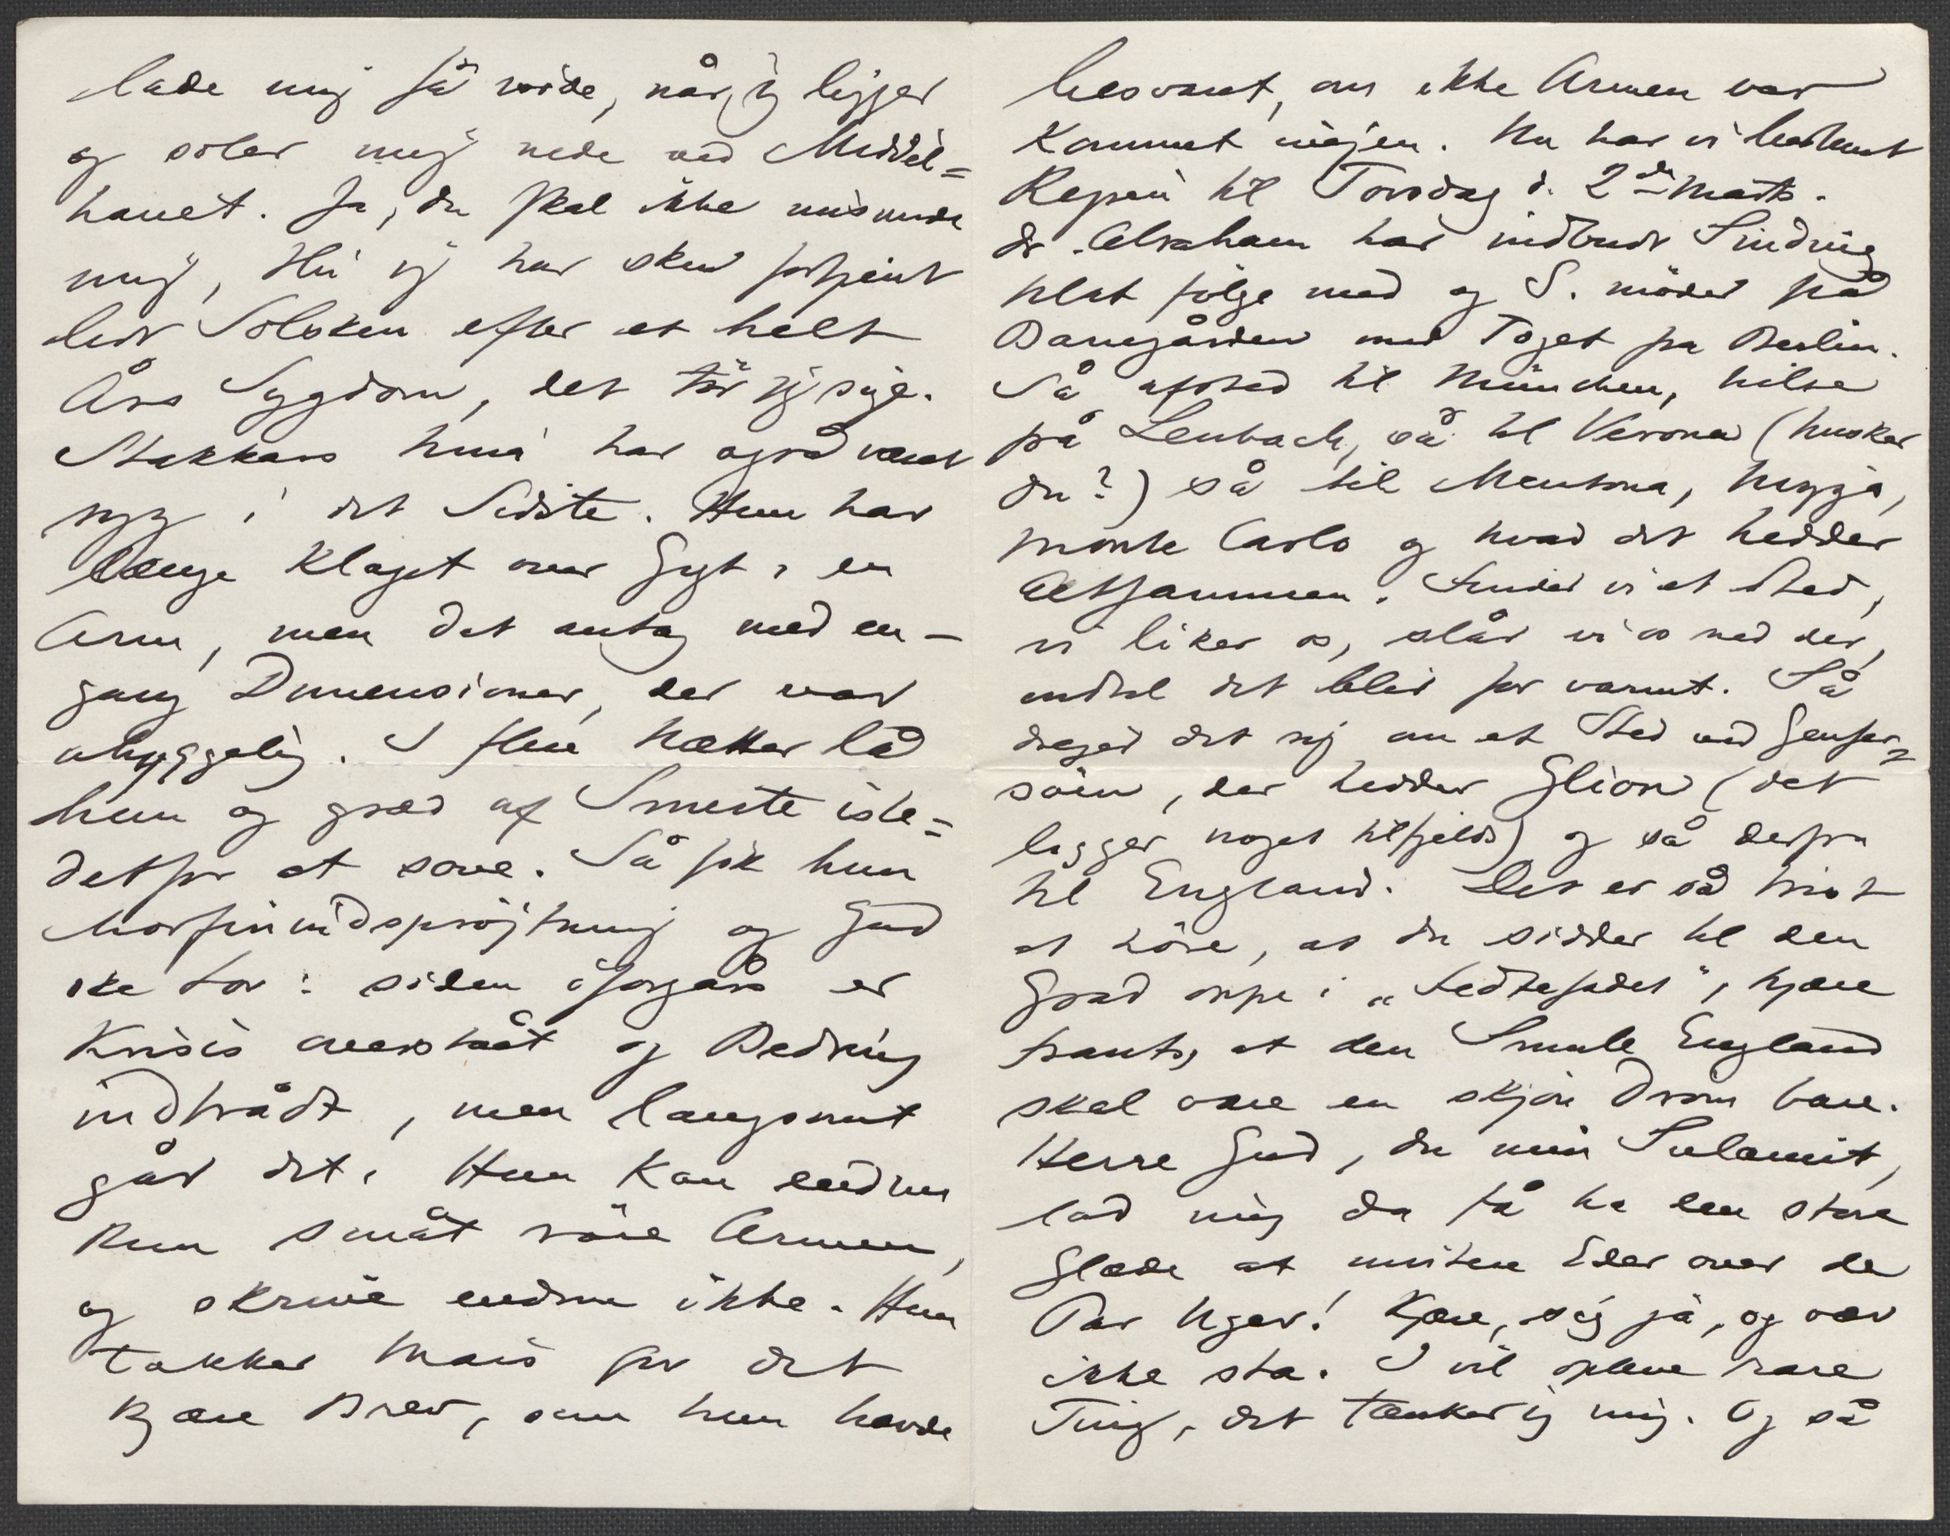 lade mig få vide, når jeg ligger
og soler mig nede ved Middel=
havet. Ja, du skal ikke misunde
mig, thi jeg har skam fortjent
lidt Solskin efter et helt
Års Sygdom, det tör jeg sige.
Stakkars Nina har også været
syg i det Sidste. Hun har
længe klaget over Gigt i en
Arm, men det antog med en-
gang Dimensioner, der var
uhyggelig. I flere Nætter lå
hun og græd af Smerte iste=
detfor at sove. Så fik hun
Morfinindspröjtning og Gud
ske Lov: siden iforgårs er
Krisis overstået og Bedring
indtrådt, men langsomt
går det. Hun kan endnu
kun småt röre Armen,
og skrive endnu ikke. Hun
takker Mais for det
kjære Brev, som hun havde
besvaret, om ikke Armen var
kommet iveien. Nu har vi bestemt
Rejsen til Torsdag d. 2den Marts.
dr. Abraham har indbudt Sinding
til at fölge med og S. möder på
Banegården med Toget fra Berlin.
Så afsted til München, hilse
på Lenbach, så til Verona (husker
du?) så til Mentona, Nizza,
Monte Carlo og hvad det hedder
altsammen. Finder vi et Sted,
vi liker os, slår vi os ned der,
indtil det blir for varmt. Så
drejer det sig om et Sted ved Genfer=
söen, der hedder Glion (det
ligger noget tilfjelds) og så derfra
til England. Det er så trist
at höre, at du sidder til den
Grad oppe i „Fedtefadet", kjære
Frants, at den Smule England
skal være en skjön Dröm bare.
Herre Gud, du min Sulamit,
lad mig da få ha den store
Glæde at invitere Eder over de
Par Uger! Kjære, sig ja, og vær
ikke sta. I vil opleve rare
Ting, det tænker jeg mig. Og så